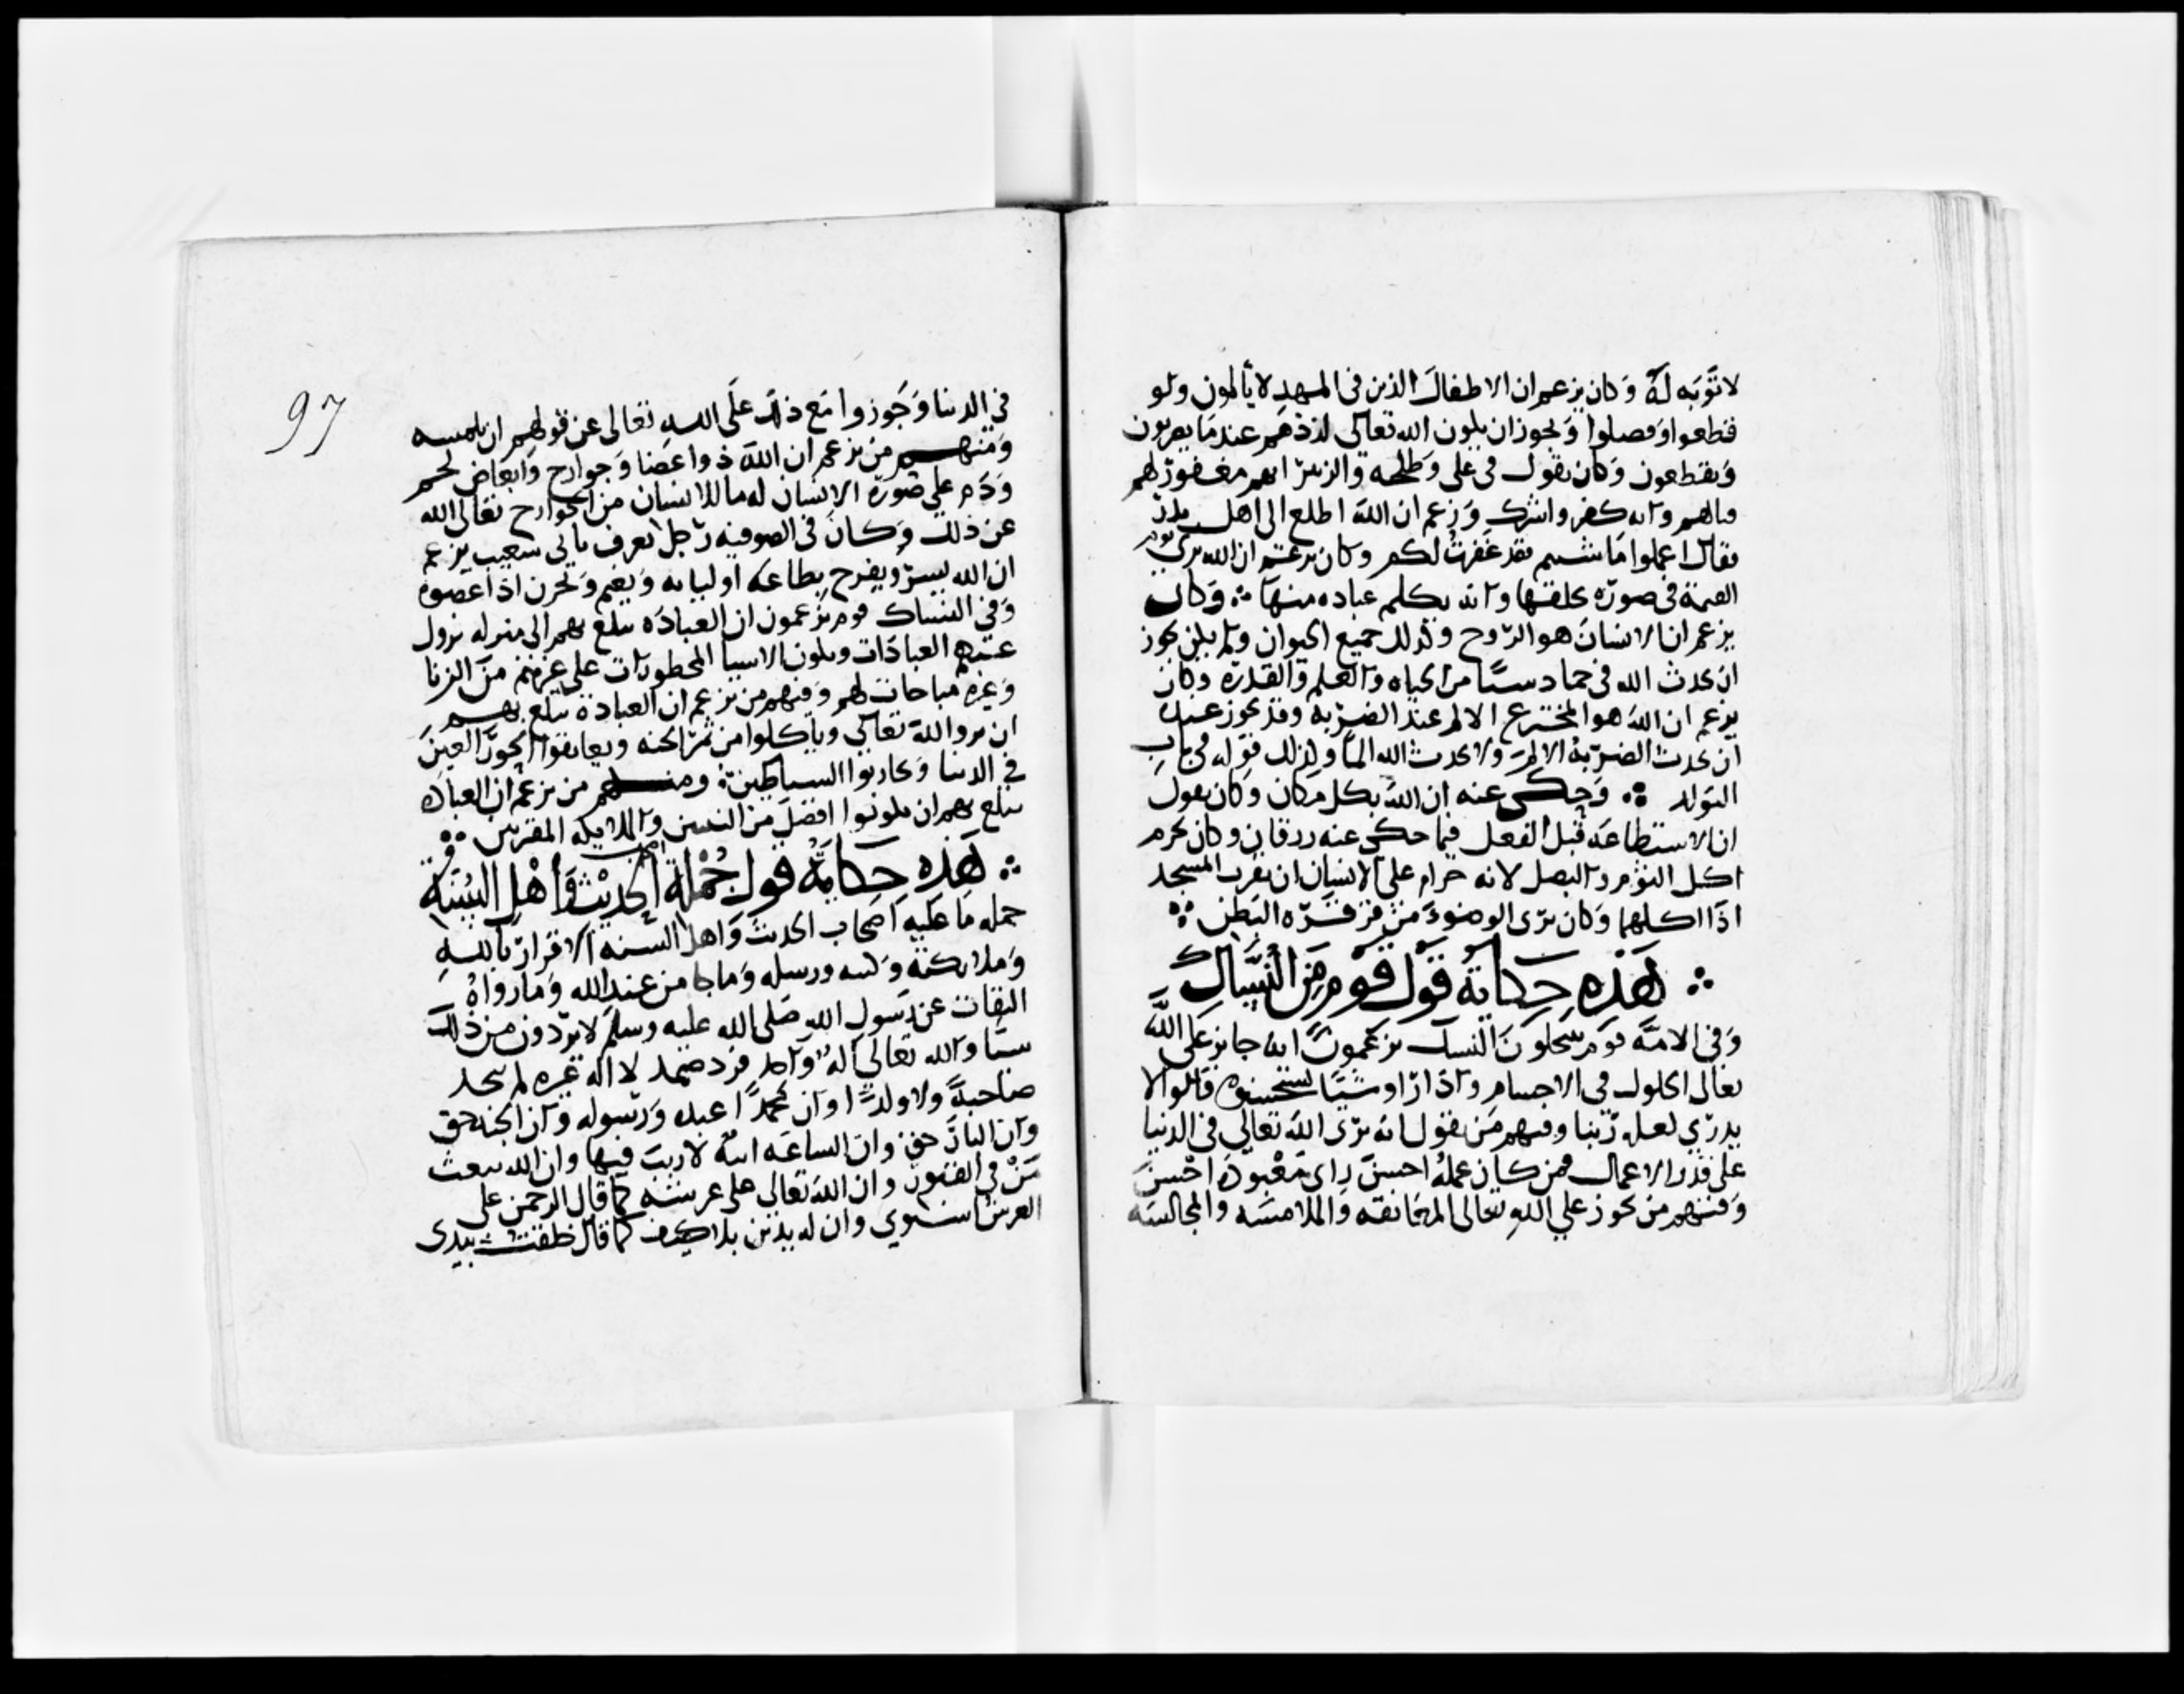 لا توبه له وكان يزعم ان الاطفال الذين في المهد لا يألمون ولو
قطعوا وفصلوا ويجوز ان يكون الله تعالى لذذهم عند ما يضربون
ويقطعون وكان يقول في علي وطلحه والزبير انهم مغفور لهم
قتالهم وانه كفر واشرك وزعم ان الله اطلع الى اهل بدر
فقال اعملوا ما شئتم فقد غفرت لكم وكان يزعم ان الله يرى يوم
القيمة في صورة يخلقها وانه يكلم عباده منها ∴ وكان
يزعم ان الانسان هو الروح وكذلك جميع الحيوان ولم يكن يجوز
ان يحدث الله في جماد شيئا من الحياه والعلم والقدرة وكان
يزعم ان الله هو المخترع الالم عند الضربة وقد يجوز عنده
ان يحدث الضربة الالم ولا يحدث الله الما وكذلك قوله في باب
التولد ∴ وحكى عنه ان الله بكل مكان وكان يقول
ان الاستطاعة قبل الفعل فيما حكى عنه زرقان وكان يحرم
اكل الثوم والبصل لانه حرام على الانسان ان يقرب المسجد
اذا اكلهما وكان يرى الوضوء من قرقرة البطن ∴
∴ هذه حكاية قول قوم من النساك
وفي الامة قوم ينتحلون النسك يزعمون انه جايز على الله
تعالى الحلول في الاجسام واذا راوا شيئا يستحسنوه قالوا لا
يدرى لعله ربنا ومنهم من يقول انه يرى الله تعالى في الدنيا
على قدر الاعمال فمن كان عمله احسن راى معبوده احسن
ومنهم من يجوز على الله تعالى المعانقه والملامسه والمجالسه
97
في الدنيا وجوزوا مع ذلك على الله تعالى عن قولهم ان نلمسه
ومنهم من يزعم ان الله ذو اعضا وجوارح وابعاض لحم
ودم على صورة الانسان له ما للانسان من الجوارح تعالى الله
عن ذلك وكان في الصوفيه رجل يعرف بابي شعيب يزعم
ان الله يسر ويفرح بطاعة اوليايه ويغم ويحزن اذا عصوه
وفي النساك قوم يزعمون ان العباده تبلغ بهم الى منزله تزول
عنهم العبادات وتكون الاشيا المحظورات على غيرهم من الزنا
وغيره مباحات لهم ومنهم من يزعم ان العبادة تبلغ بهم
ان يروا الله تعالى وياكلوا من ثمر الجنه ويعانقوا الحور العين
في الدنيا ويحاربوا الشياطين ∴ ومنهم من يزعم ان العباده
تبلغ بهم ان يكونوا افضل من النبيين والملايكه المقربين ∴
∴ هذه حكاية قول جملة اصحاب الحديث واهل السنة
جمله ما عليه اصحاب الحديث واهل السنه الاقرار بالله
وملائكته وكتبه ورسله وما جا من عند الله وما رواه
الثقات عن رسول الله صلى الله عليه وسلم لا يردون من ذلك
شيئا والله تعالى اله واحد فرد صمد لا اله غيره لم يتخذ
صاحبة ولا ولدا وان محمدا عبده ورسوله وان الجنه حق
وان النار حق وان الساعه اتية لا ريب فيها وان الله يبعث
من في القبور وان الله تعالى على عرشه كما قال الرحمن على
العرش استوى وان له يدين بلا كيف كما قال خلقت بيدى